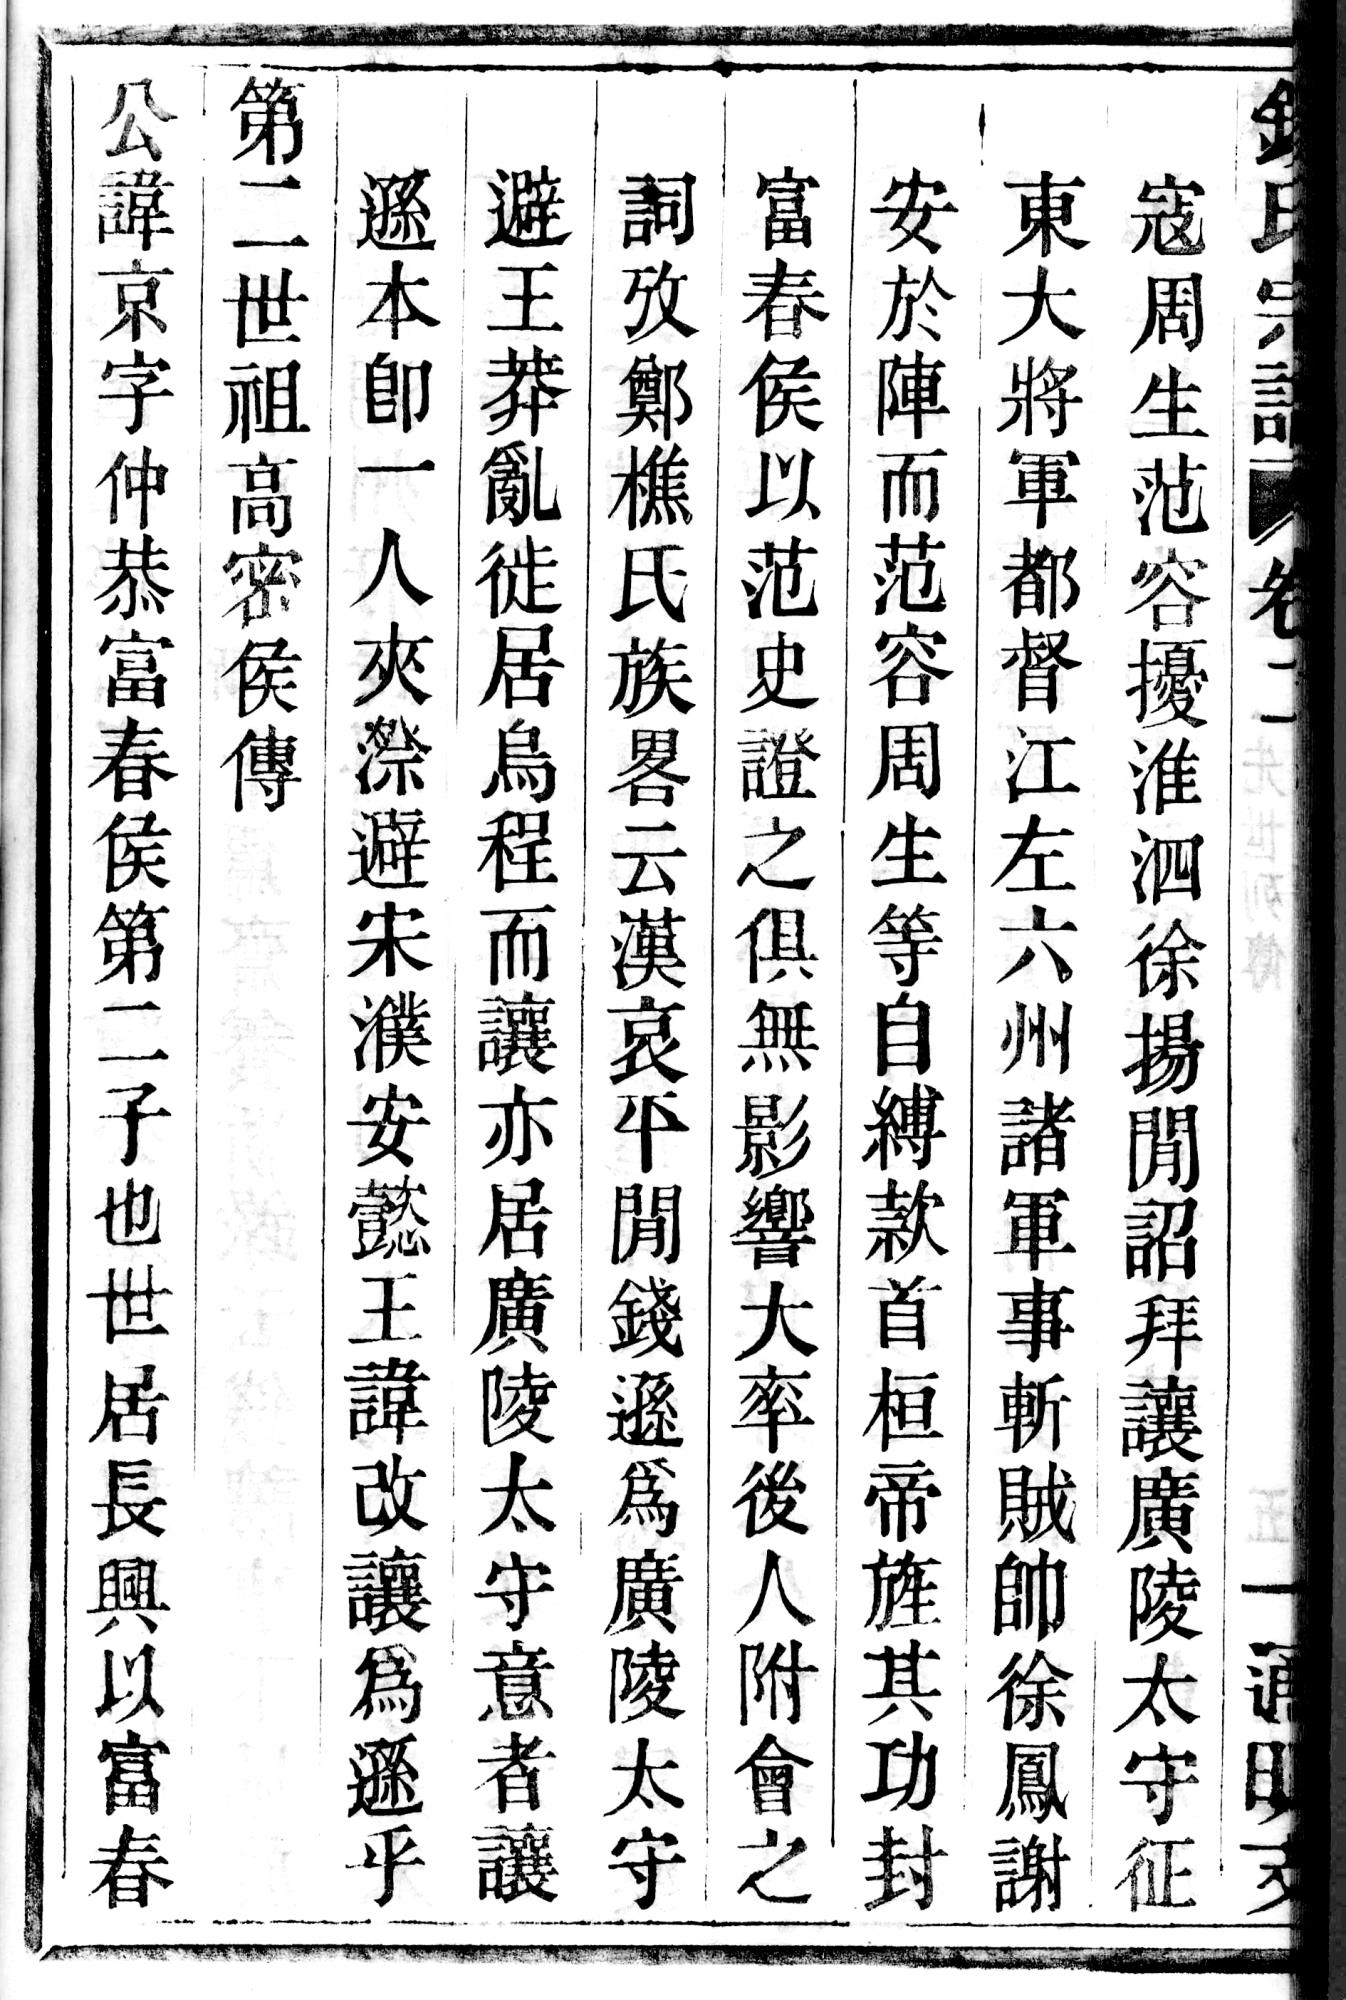 錢氏宗譜 卷二 先世列傳 五 一
寇周生范容擾淮泗徐揚閒詔拜讓廣陵太守征
東大將軍都督江左六州諸軍事斬賊帥徐鳳謝
安於陣而范容周生等自縛款首桓帝旌其功封
富春侯以范史證之俱無影響大率後人附會之
詞攷鄭樵氏族畧云漢哀平閒錢遜爲廣陵太守
避王莽亂徙居烏程而讓亦居廣陵太守意者讓
遜本卽一人夾漈避宋濮安懿王諱改讓爲遜乎
第二世祖高密侯傳
公諱京字仲恭富春侯第二子也世居長興以富春